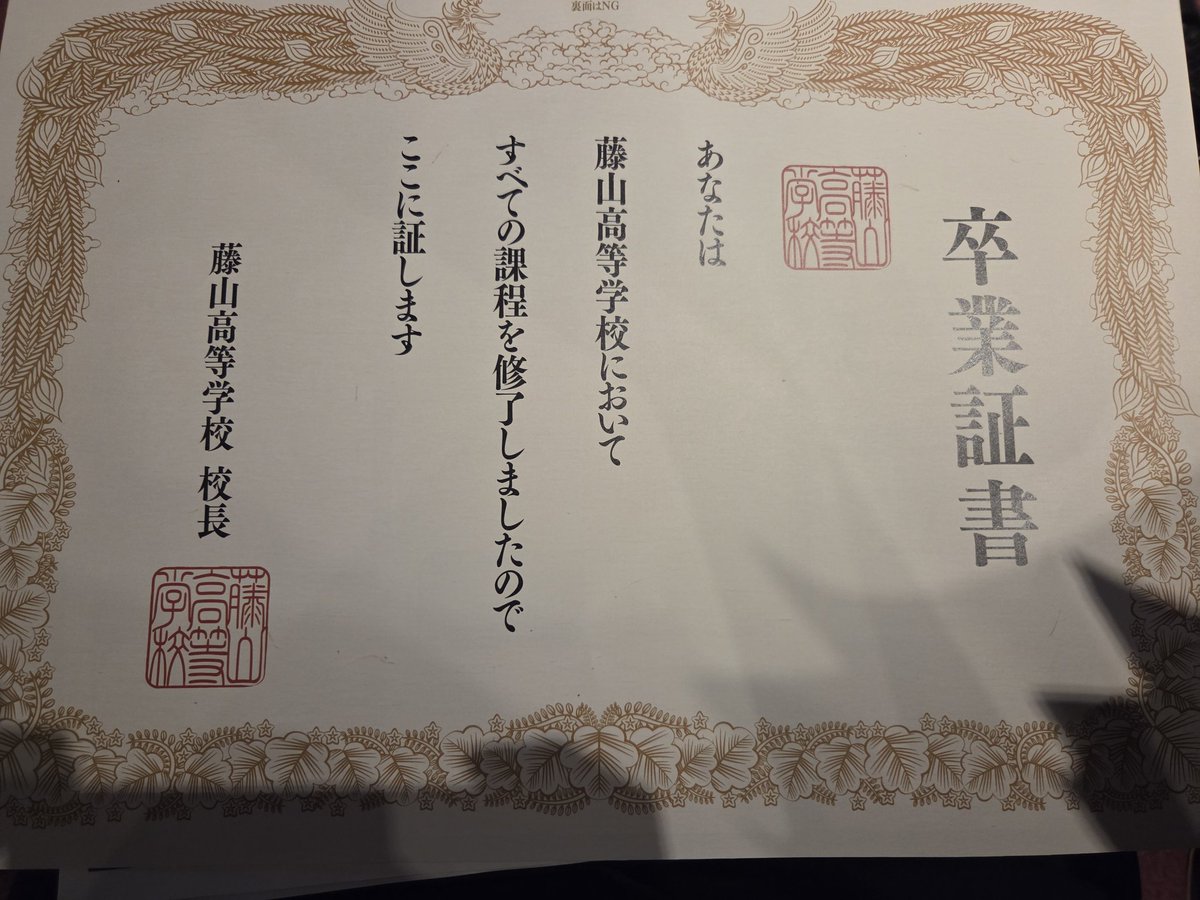 裏面はNG
卒業証書
藤山高等学校
あなたは
藤山高等学校において
すべての課程を修了しましたので
ここに証します
藤山高等学校 校長
藤山高等学校